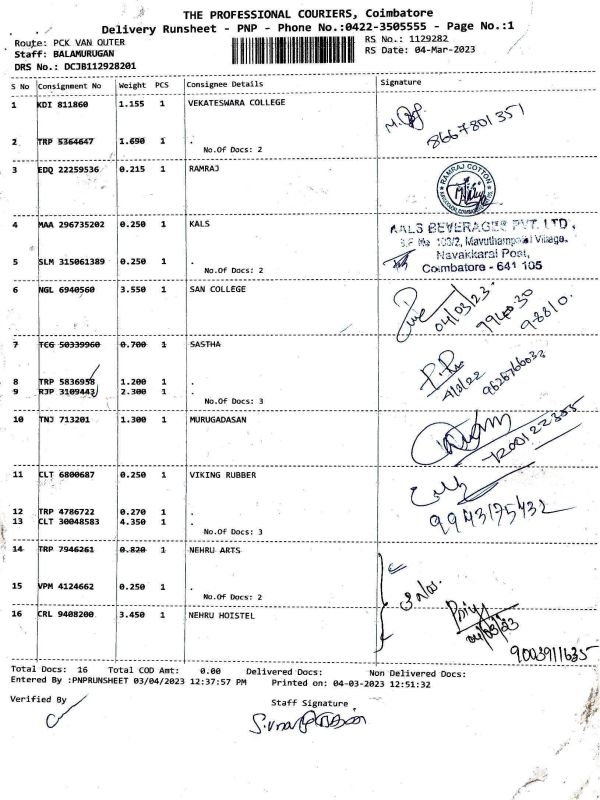 THE PROFESSIONAL COURIERS, Coimbatore
Delivery Runsheet - PNP - Phone No.:0422-3505555 - Page No.:1
Route: PCK VAN OUTER
RS No.: 1129282
Staff: BALAMURUGAN
RS Date: 04-Mar-2023
DRS No.: DCJB112928201
S No Consignment No Weight PCS Consignee Details Signature
1 KDI 811860 1.155 1 VEKATESWARA COLLEGE
8667801351
2 TRP 5364647 1.690 1 .
No.Of Docs: 2
3 EDQ 22259536 0.215 1 RAMRAJ
RAMRAJ COTTON
4 MAA 296735202 0.250 1 KALS
KALS BEVERAGES PVT. LTD.,
S.F. No 103/2, Mavuthampathi Village,
Navakkarai Post,
Coimbatore - 641 105
5 SLM 315061389 0.250 1 .
No.Of Docs: 2
6 NGL 6940560 3.550 1 SAN COLLEGE
04/03/23.
794030
98810.
7 TCG 50339960 0.700 1 SASTHA
8 TRP 5836958 1.200 1 .
9 RJP 3109443 2.300 1 .
No.Of Docs: 3
4/3/22
9626766032
10 TNJ 713201 1.300 1 MURUGADASAN
11 CLT 6800687 0.250 1 VIKING RUBBER
12 TRP 4786722 0.270 1 .
13 CLT 30048583 4.350 1 .
No.Of Docs: 3
9943175432
14 TRP 7946261 0.820 1 NEHRU ARTS
15 VPM 4124662 0.250 1 .
No.Of Docs: 2
3 Nos.
16 CRL 9408200 3.450 1 NEHRU HOISTEL
Priya
04/03/23
9003911635
Total Docs: 16 Total COD Amt: 0.00 Delivered Docs: Non Delivered Docs:
Entered By :PNPRUNSHEET 03/04/2023 12:37:57 PM Printed on: 04-03-2023 12:51:32
Verified By
Staff Signature